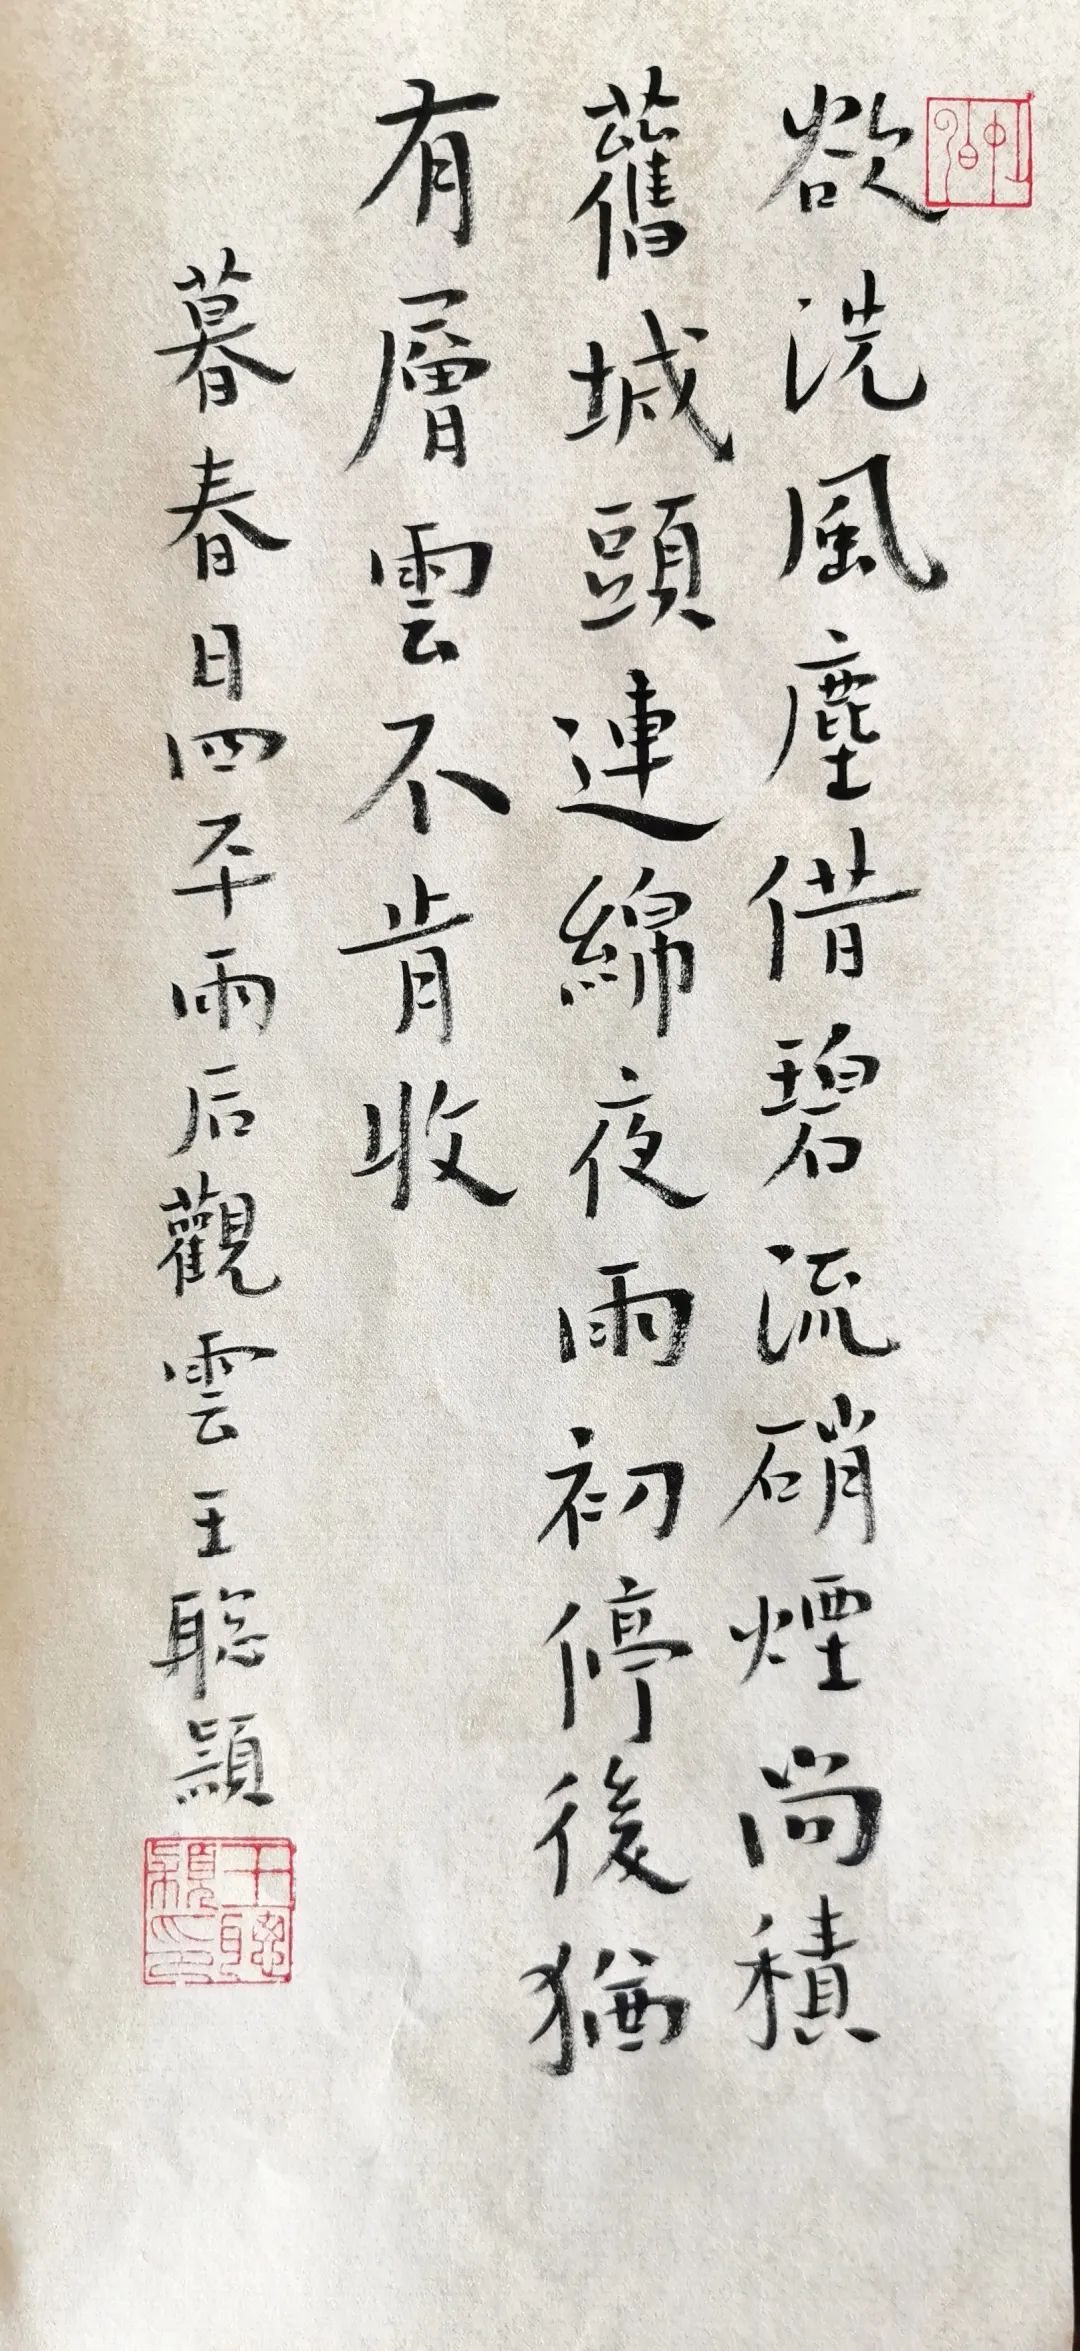 欲洗風塵借碧流硝煙尚積
舊城頭連綿夜雨初停後猶
有層雲不肯收
暮春日四平雨后觀雲王聰穎
王聰穎印